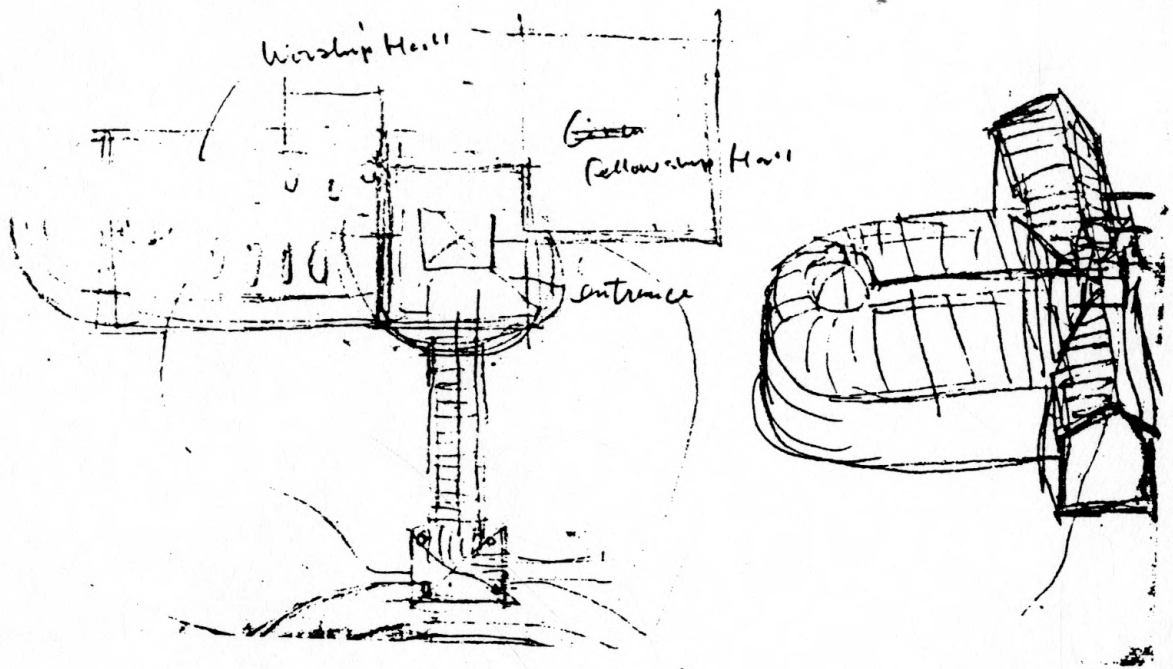 Worship Hall
Fellowship Hall
entrance